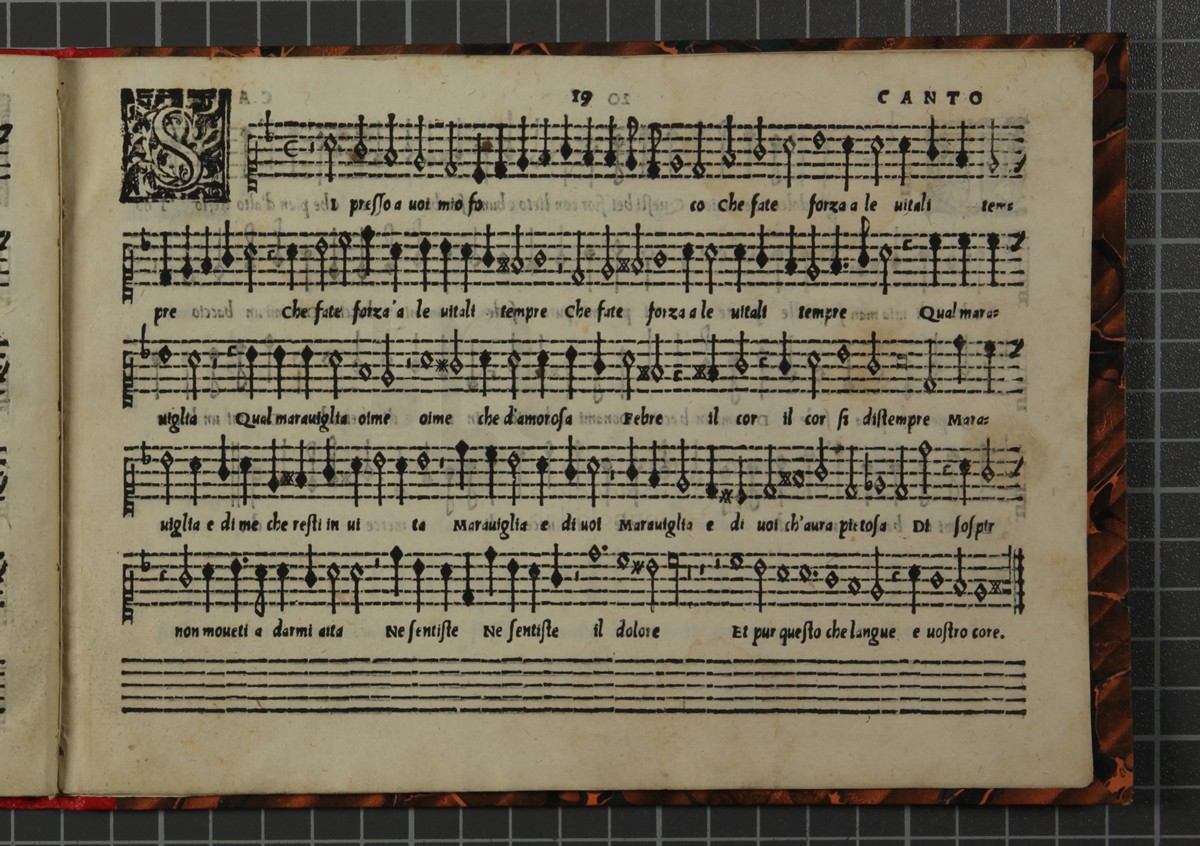 19 CANTO
SI presso a uoi mio fo co Che fate forza a le uitali tem=
pre Che fate forza'a le uitali tempre Che fate forza a le uitali tempre Qual mara=
uiglia Qual marauiglia oime oime che d'amorosa Febre il cor il cor si distempre Mara=
uiglia e di me che resti in ui ta Marauiglia e di uoi Marauiglia e di uoi ch'aura pietosa Di sospir
non moueti a darmi aita Ne sentiste Ne sentiste il dolore Et pur questo che langue e uostro core.